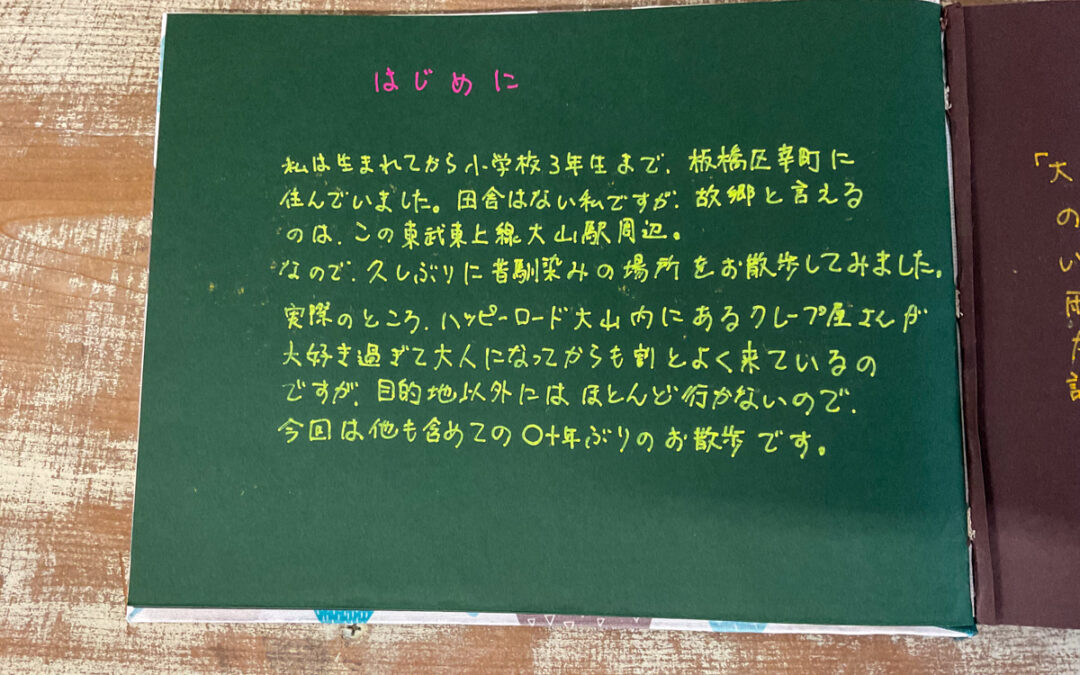 はじめに
私は生まれてから小学校3年生まで、板橋区幸町に
住んでいました。田舎はない私ですが、故郷と言える
のは、この東武東上線大山駅周辺。
なので、久しぶりに昔馴染みの場所をお散歩してみました。
実際のところ、ハッピーロード大山内にあるクレープ屋さんが
大好き過ぎて大人になってからも割とよく来ているの
ですが、目的地以外にはほとんど行かないので、
今回は他も含めての〇十年ぶりのお散歩です。
「大
のい